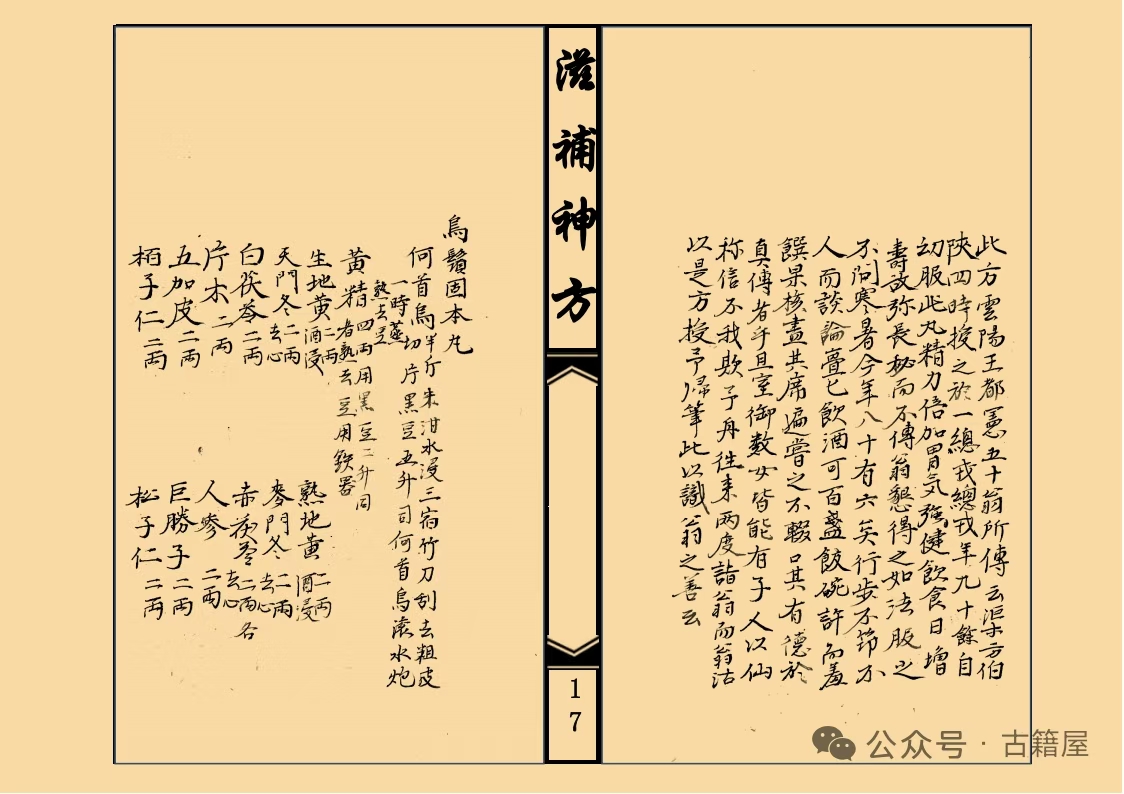 此方雲陽王都憲五十翁所傳云渠方伯
陝四時授之於一總戎總戎年九十餘自
幼服此丸精力倍加胃氣強健飲食日增
壽故弥長秘而不傳翁懇得之如法服之
不問寒暑今年八十有六矣行步不笻不
人而談論亹匕飲酒可百盞飯碗許而羞
饌果核盡其席遍嘗之不輟口其有德於
真傳者乎且室御数女皆能有子人以仙
祢信不我欺予舟徃来两度詣翁而翁沽
以是方授予歸筆此以識翁之善云
滋補神方
17
烏鬚固本丸
何首烏半斤朱泔水浸三宿竹刀刮去粗皮
切片黑豆五升司何首烏滚水炮
一時蒸
熟去豆
黄精四两用黑豆二升同
者熟去豆用鉄器
生地黄二两酒浸
熟地黄二两酒浸
天門冬二两去心
麥門冬二两去心
白茯苓二两
赤茯苓二两去心各
片木二两
人參二两
五加皮二两
巨勝子二两
栢子仁二两
松子仁二两
公众号 · 古籍屋